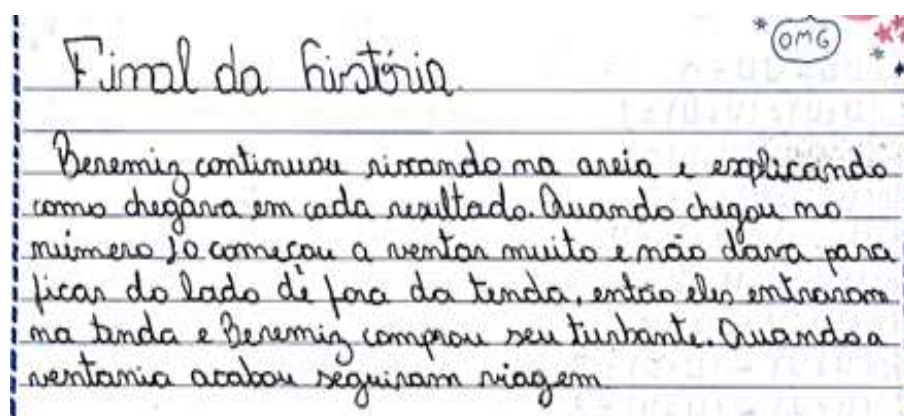 OMG
Final da história.
Beremiz continuou riscando na areia e explicando
como chegava em cada resultado. Quando chegou no
número 10 começou a ventar muito e não dava para
ficar do lado de fora da tenda, então eles entraram
na tenda e Beremiz comprou seu turbante. Quando a
ventania acabou seguiram viagem